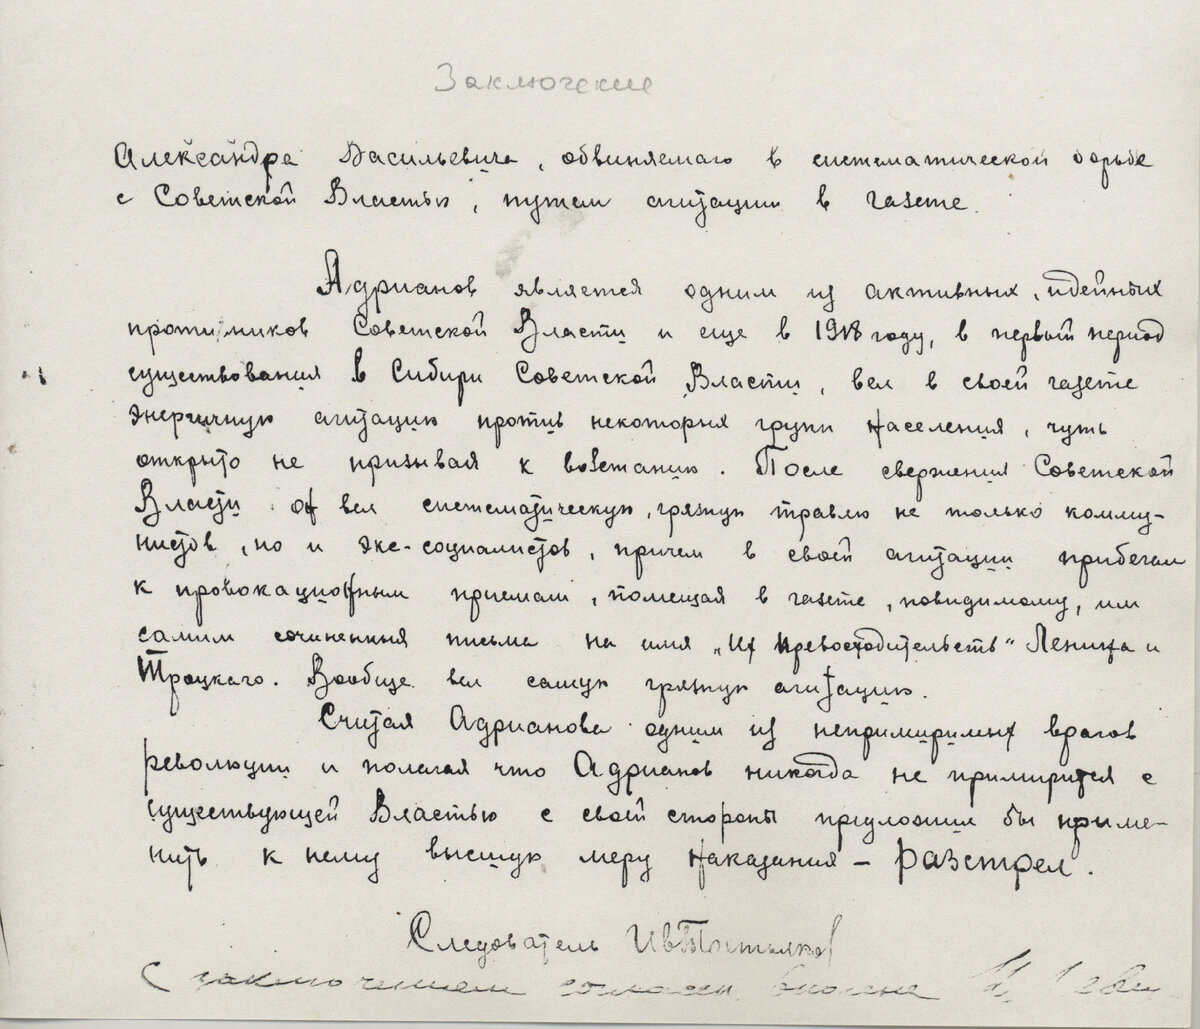 Заключение
Александра Васильевича, обвиняемаго в систематической борьбе
с Советской Властью, путем агитации в газете.
Адрианов является одним из активных, идейных
противников Советской Власти и еще в 1918 году, в первый период
существования в Сибири Советской Власти, вел в своей газете
энергичную агитацию против некоторых групп населения, чуть
открыто не призывая к возстанию. После свержения Советской
Власти вел систематическую, грязную травлю не только комму-
нистов, но и экс-социалистов, причем в своей агитации прибегал
к провокационным приемам, помещая в газете, повидимому, им
самим сочиненныя письма на имя „Их Превосходительств" Ленина и
Троцкаго. Вообще вел самую грязную агитацию.
Считая Адрианова одним из непримиримых врагов
революции и полагая что Адрианов никогда не примирится с
существующей Властью с своей стороны предложил бы приме-
нить к нему высшую меру наказания – разстрел.
Следователь
С заключением согласен вполне